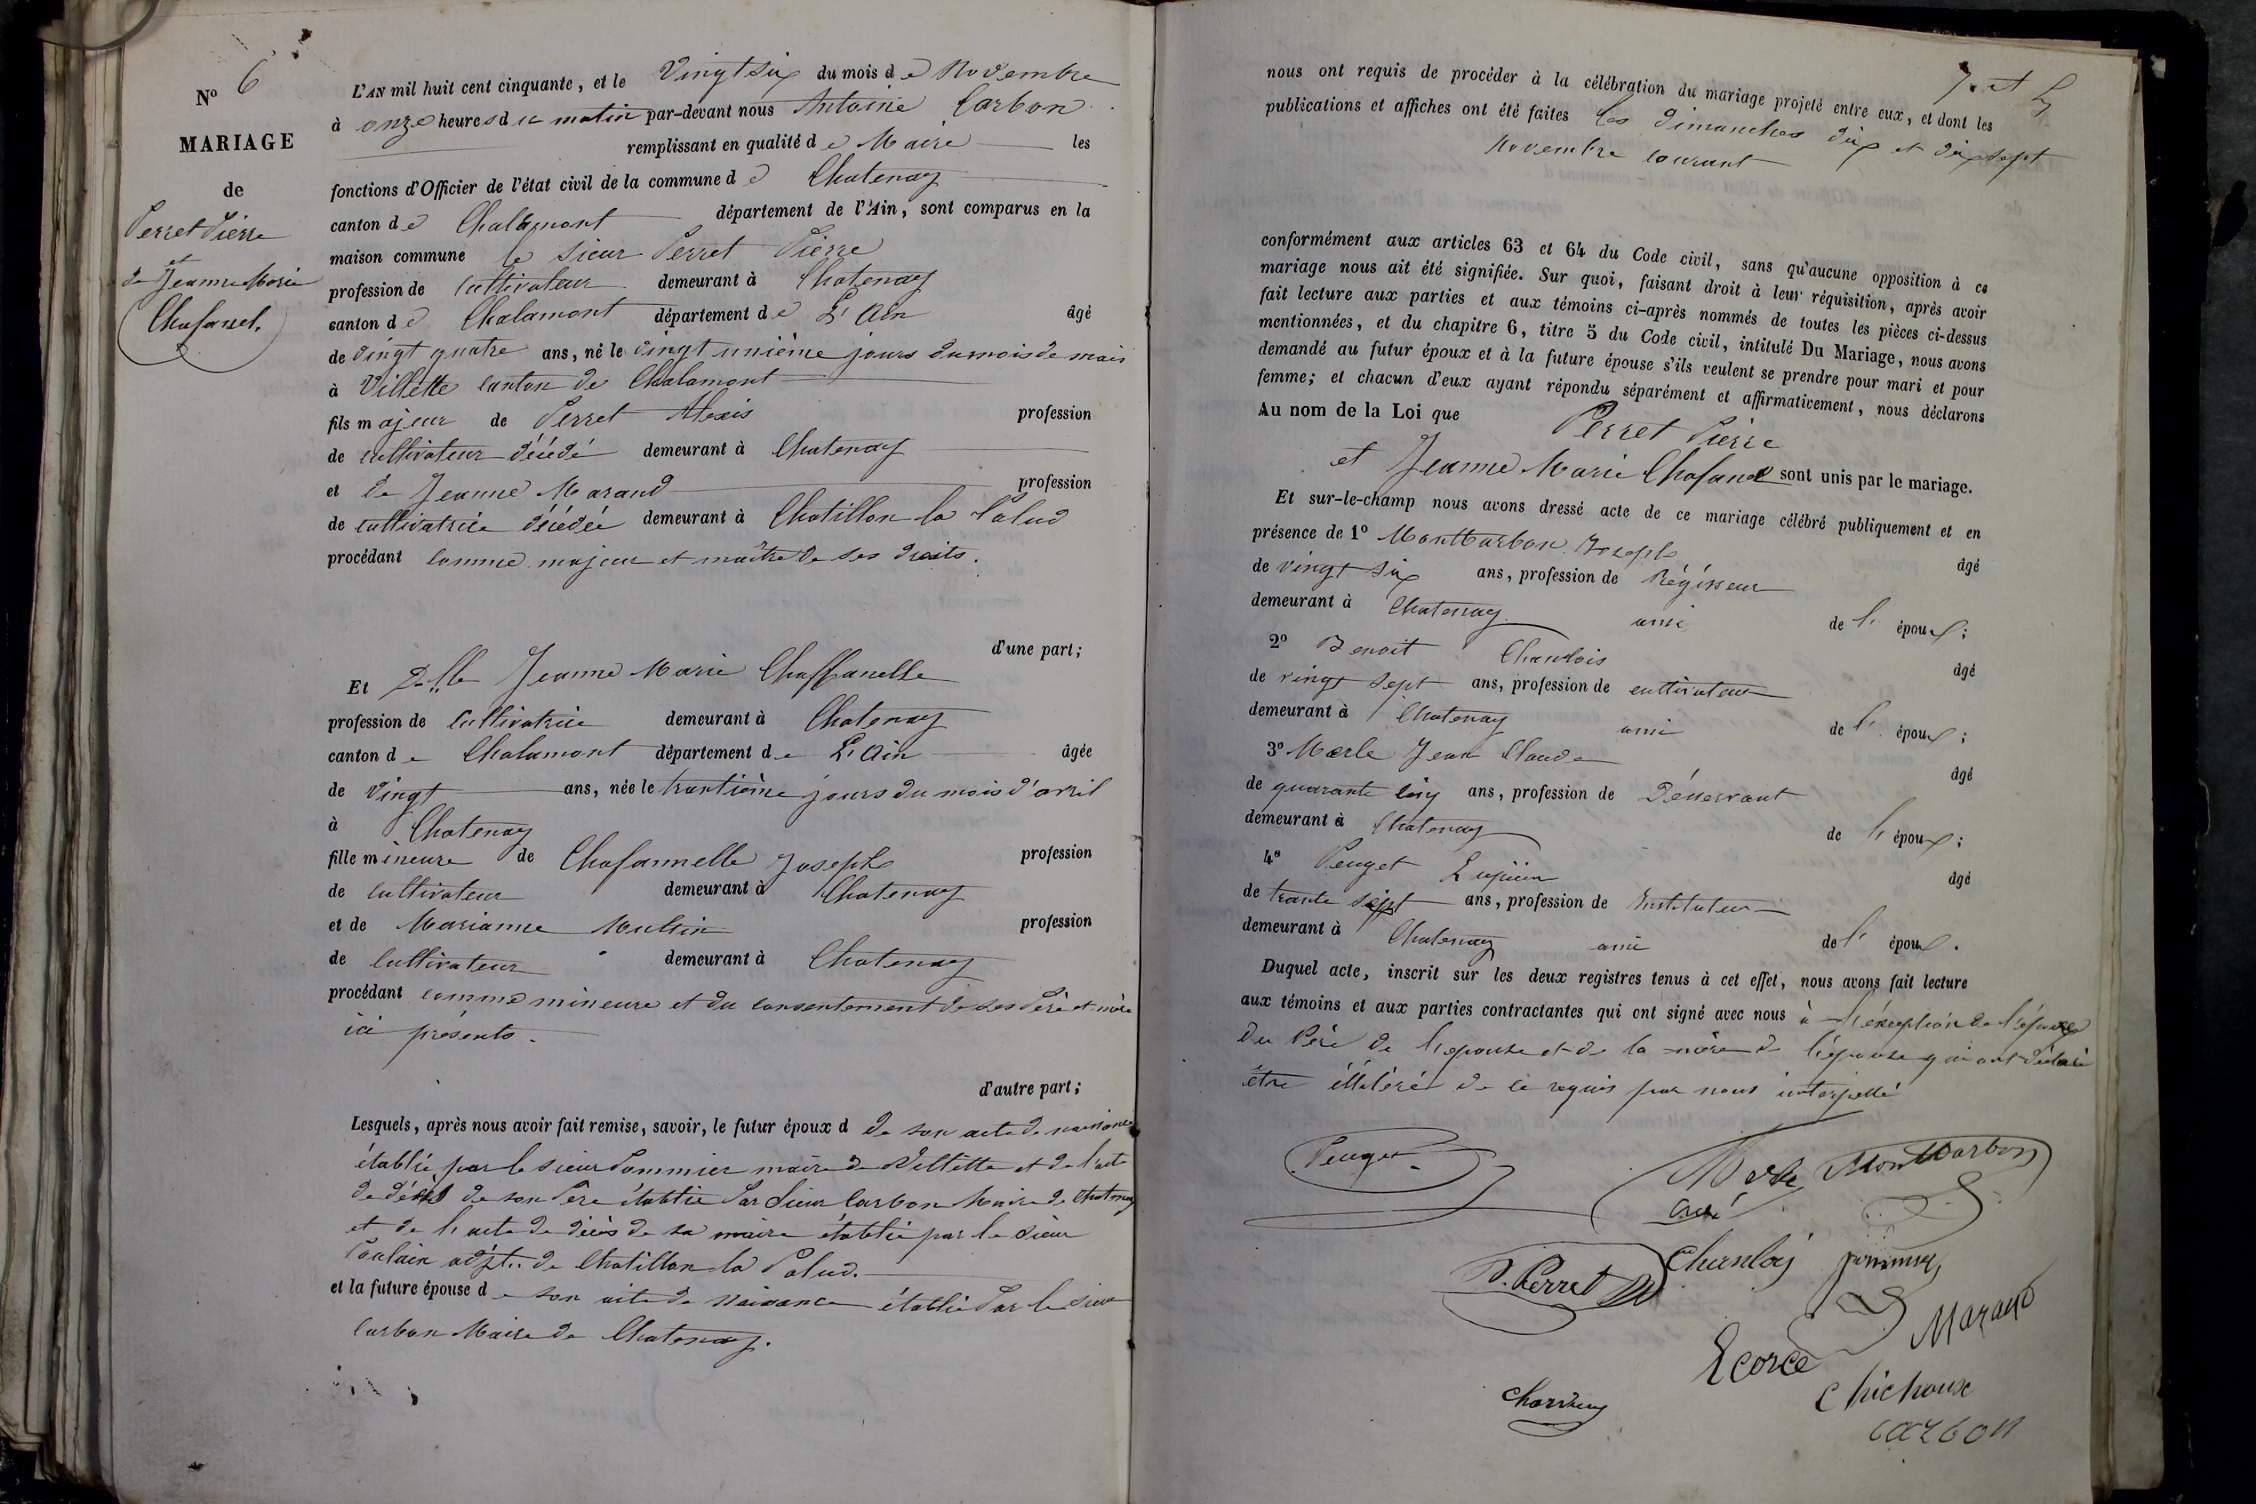 N° 6
MARIAGE
de
Perret Pierre
et
de Jeanne Marie
Chafanel.
L'AN mil huit cent cinquante, et le Vingt six du mois de Novembre
à onze heures du matin par-devant nous Antoine Carbon
remplissant en qualité de Maire les
fonctions d'Officier de l'état civil de la commune de Chatenay
canton de Chalamont département de l'Ain, sont comparus en la
maison commune le sieur Perret Pierre
profession de Cultivateur demeurant à Chatenay
canton de Chalamont département de L'Ain âgé
de vingt quatre ans, né le vingt unième jours du mois de mars
à Villette canton de Chalamont
fils majeur de Perret Alexis profession
de cultivateur décédé demeurant à Chatenay
et de Jeanne Marand profession
de cultivatrice décédée demeurant à Chatillon la Palud
procédant comme majeur et maître de ses droits.
d'une part;
Et Delle Jeanne Marie Chaffanelle
profession de Cultivatrice demeurant à Chatenay
canton de Chalamont département de L'Ain âgée
de vingt ans, née le trantième jours du mois d'avril
à Chatenay
fille mineure de Chafannelle Joseph profession
de cultivateur demeurant à Chatenay
et de Marianne Multin profession
de Cultivateur demeurant à Chatenay
procédant comme mineure et du consentement de ses Père et mère
ici présents.
d'autre part;
Lesquels, après nous avoir fait remise, savoir, le futur époux d de son acte de naissance
établie par le sieur Pommier maire de Villette et de l'acte
de décès de son Père établie Par Sieur Carbon Maire de Chatenay
et de l'acte de décès de sa maire établie par le sieur
Poulain adjt. de Chatillon la Palud.
et la future épouse de son acte de Naissance établie Par le sieur
Carbon Maire de Chatenay.
nous ont requis de procéder à la célébration du mariage projeté entre eux, et dont les
publications et affiches ont été faites les dimanches dix et dix sept
Novembre courant
conformément aux articles 63 et 64 du Code civil, sans qu'aucune opposition à ce
mariage nous ait été signifiée. Sur quoi, faisant droit à leur réquisition, après avoir
fait lecture aux parties et aux témoins ci-après nommés de toutes les pièces ci-dessus
mentionnées, et du chapitre 6, titre 5 du Code civil, intitulé Du Mariage, nous avons
demandé au futur époux et à la future épouse s'ils veulent se prendre pour mari et pour
femme; et chacun d'eux ayant répondu séparément et affirmativement, nous déclarons
Au nom de la Loi que Perret Pierre
et Jeanne Marie Chafanel sont unis par le mariage.
Et sur-le-champ nous avons dressé acte de ce mariage célébré publiquement et en
présence de 1° Montbarbon Joseph âgé
de vingt six ans, profession de Régisseur
demeurant à Chatenay ami de l' époux;
2° Benoit Chanlois âgé
de vingt sept ans, profession de cultivateur
demeurant à Chatenay ami de l' époux;
3° Merle Jean Claude âgé
de quarante cinq ans, profession de Désservant
demeurant à Chatenay de l' époux;
4° Peuget âgé
de trante sept ans, profession de Instituteur
demeurant à Chatenay ami de l' époux.
Duquel acte, inscrit sur les deux registres tenus à cet effet, nous avons fait lecture
aux témoins et aux parties contractantes qui ont signé avec nous à l'éxception de l'épouse
du Père de l'epouse et de la mère de l'épouse qui ont déclaré
être illiteré de ce requis par nous interpellé
Peuget
Merle Montbarbon
curé
P. Perret Chanlois pommier
Marand
Ecorce
Chichoux
carbon